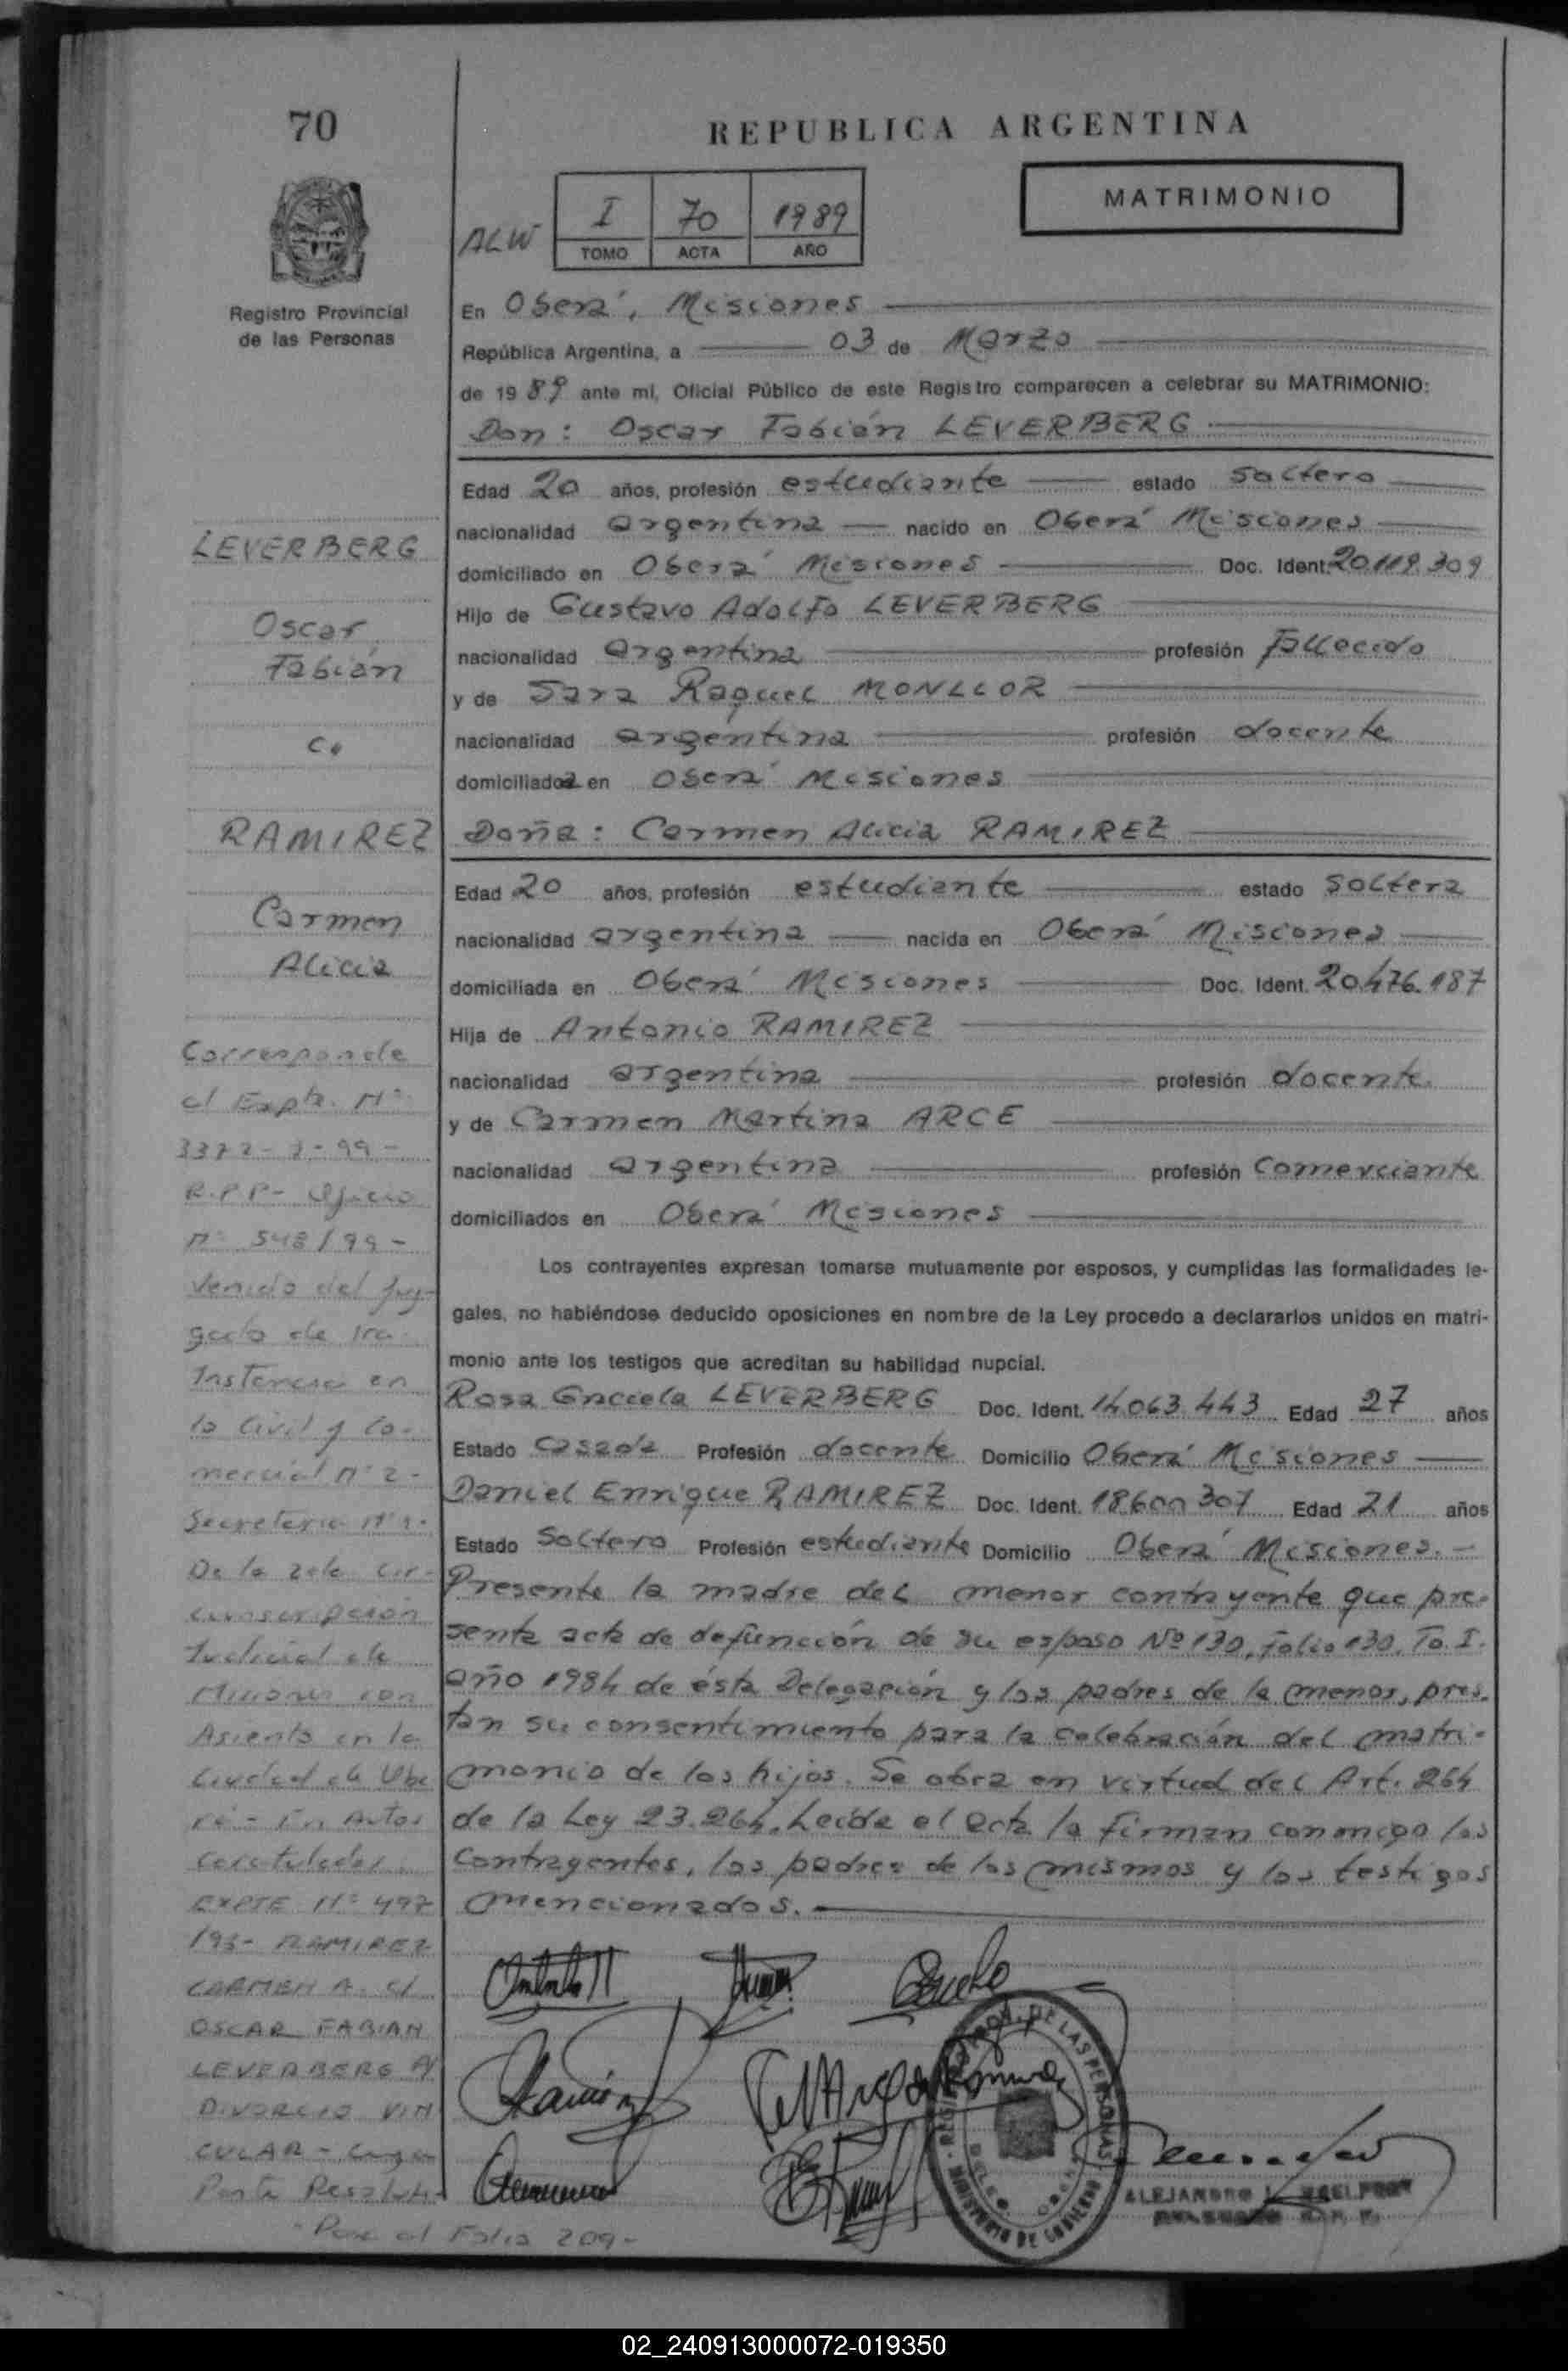 70
REPUBLICA ARGENTINA
MATRIMONIO
ALW
I 70 1989
TOMO ACTA AÑO
Registro Provincial
de las Personas
En Oberá, Misiones
República Argentina, a 03 de Marzo
de 1989 ante mi, Oficial Público de este Registro comparecen a celebrar su MATRIMONIO:
Don: Oscar Fabián LEVERBERG
Edad 20 años, profesión estudiante estado soltero
nacionalidad argentina nacido en Oberá Misiones
domiciliado en Oberá Misiones Doc. Ident. 20.119.309
Hijo de Gustavo Adolfo LEVERBERG
nacionalidad argentina profesión Fallecido
y de Sara Raquel MONLLOR
nacionalidad argentina profesión docente
domiciliada en Oberá Misiones
Doña: Carmen Alicia RAMIREZ
Edad 20 años, profesión estudiante estado soltera
nacionalidad argentina nacida en Oberá Misiones
domiciliada en Oberá Misiones Doc. Ident. 20.476.187
Hija de Antonio RAMIREZ
nacionalidad argentina profesión docente.
y de Carmen Martina ARCE
nacionalidad argentina profesión Comerciante
domiciliados en Oberá Misiones
Los contrayentes expresan tomarse mutuamente por esposos, y cumplidas las formalidades le-
gales, no habiéndose deducido oposiciones en nombre de la Ley procedo a declararlos unidos en matri-
monio ante los testigos que acreditan su habilidad nupcial.
Rosa Graciela LEVERBERG Doc. Ident. 14.063.443 Edad 27 años
Estado casada Profesión docente Domicilio Oberá Misiones
Daniel Enrique RAMIREZ Doc. Ident. 18.600.307 Edad 21 años
Estado Soltero Profesión estudiante Domicilio Oberá Misiones.-
Presente la madre del menor contrayente que pre-
senta acta de defunción de su esposo Nº 130, Folio 130, To. I.
año 1984 de ésta Delegación y los padres de la menor, pres-
tan su consentimiento para la celebración del matri-
monio de los hijos. Se obra en virtud del Art. 264
de la Ley 23.264. Leída el acta la firman conmigo los
contrayentes, los padres de los mismos y los testigos
mencionados.
LEVERBERG
Oscar
Fabián
c.
RAMIREZ
Carmen
Alicia
Corresponde
al Expte. Nº
3372-7-99-
R.P.P- Oficio
nº 548/99-
Venido del Juz-
gado de 1ra.
Instancia en
lo Civil y Co-
mercial nº 2-
Secretaria Nº
De la 2da Cir-
cunscripción
Judicial de
Misiones con
Asiento en la
Ciudad de Obe
rá - En Autos
caratulados
EXPTE Nº 497
/93- RAMIREZ
CARMEN A. c/
OSCAR FABIAN
LEVERBERG
DIVORCIO VIN
CULAR -
Parte Resolut.
- Pase al Folio 209-
ALEJANDRO
MINISTERIO DE GOBIERNO
02_240913000072-019350